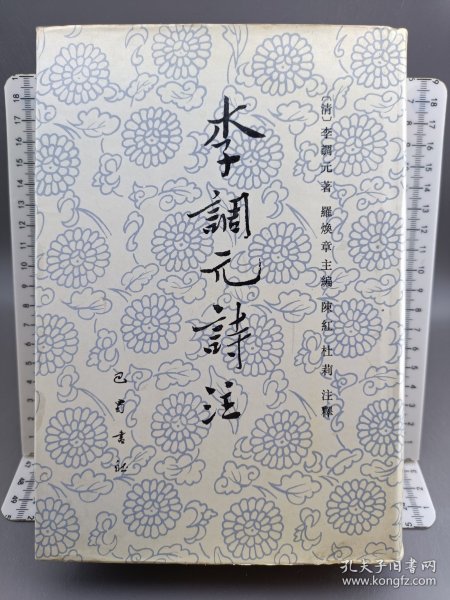 [清]李調元著 羅煥章主編 陳紅 杜莉 注釋
李調元詩注
巴蜀書社
孔夫子旧书网
www.kongfz.com